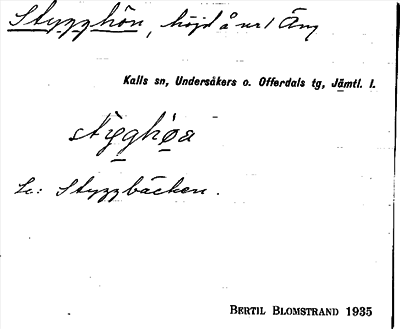 Stygghön, höjd å nr 1 Äng
Kalls sn, Undersåkers o. Offerdals tg, Jämtl. l.
Se: Styggbäcken.
BERTIL BLOMSTRAND 1935